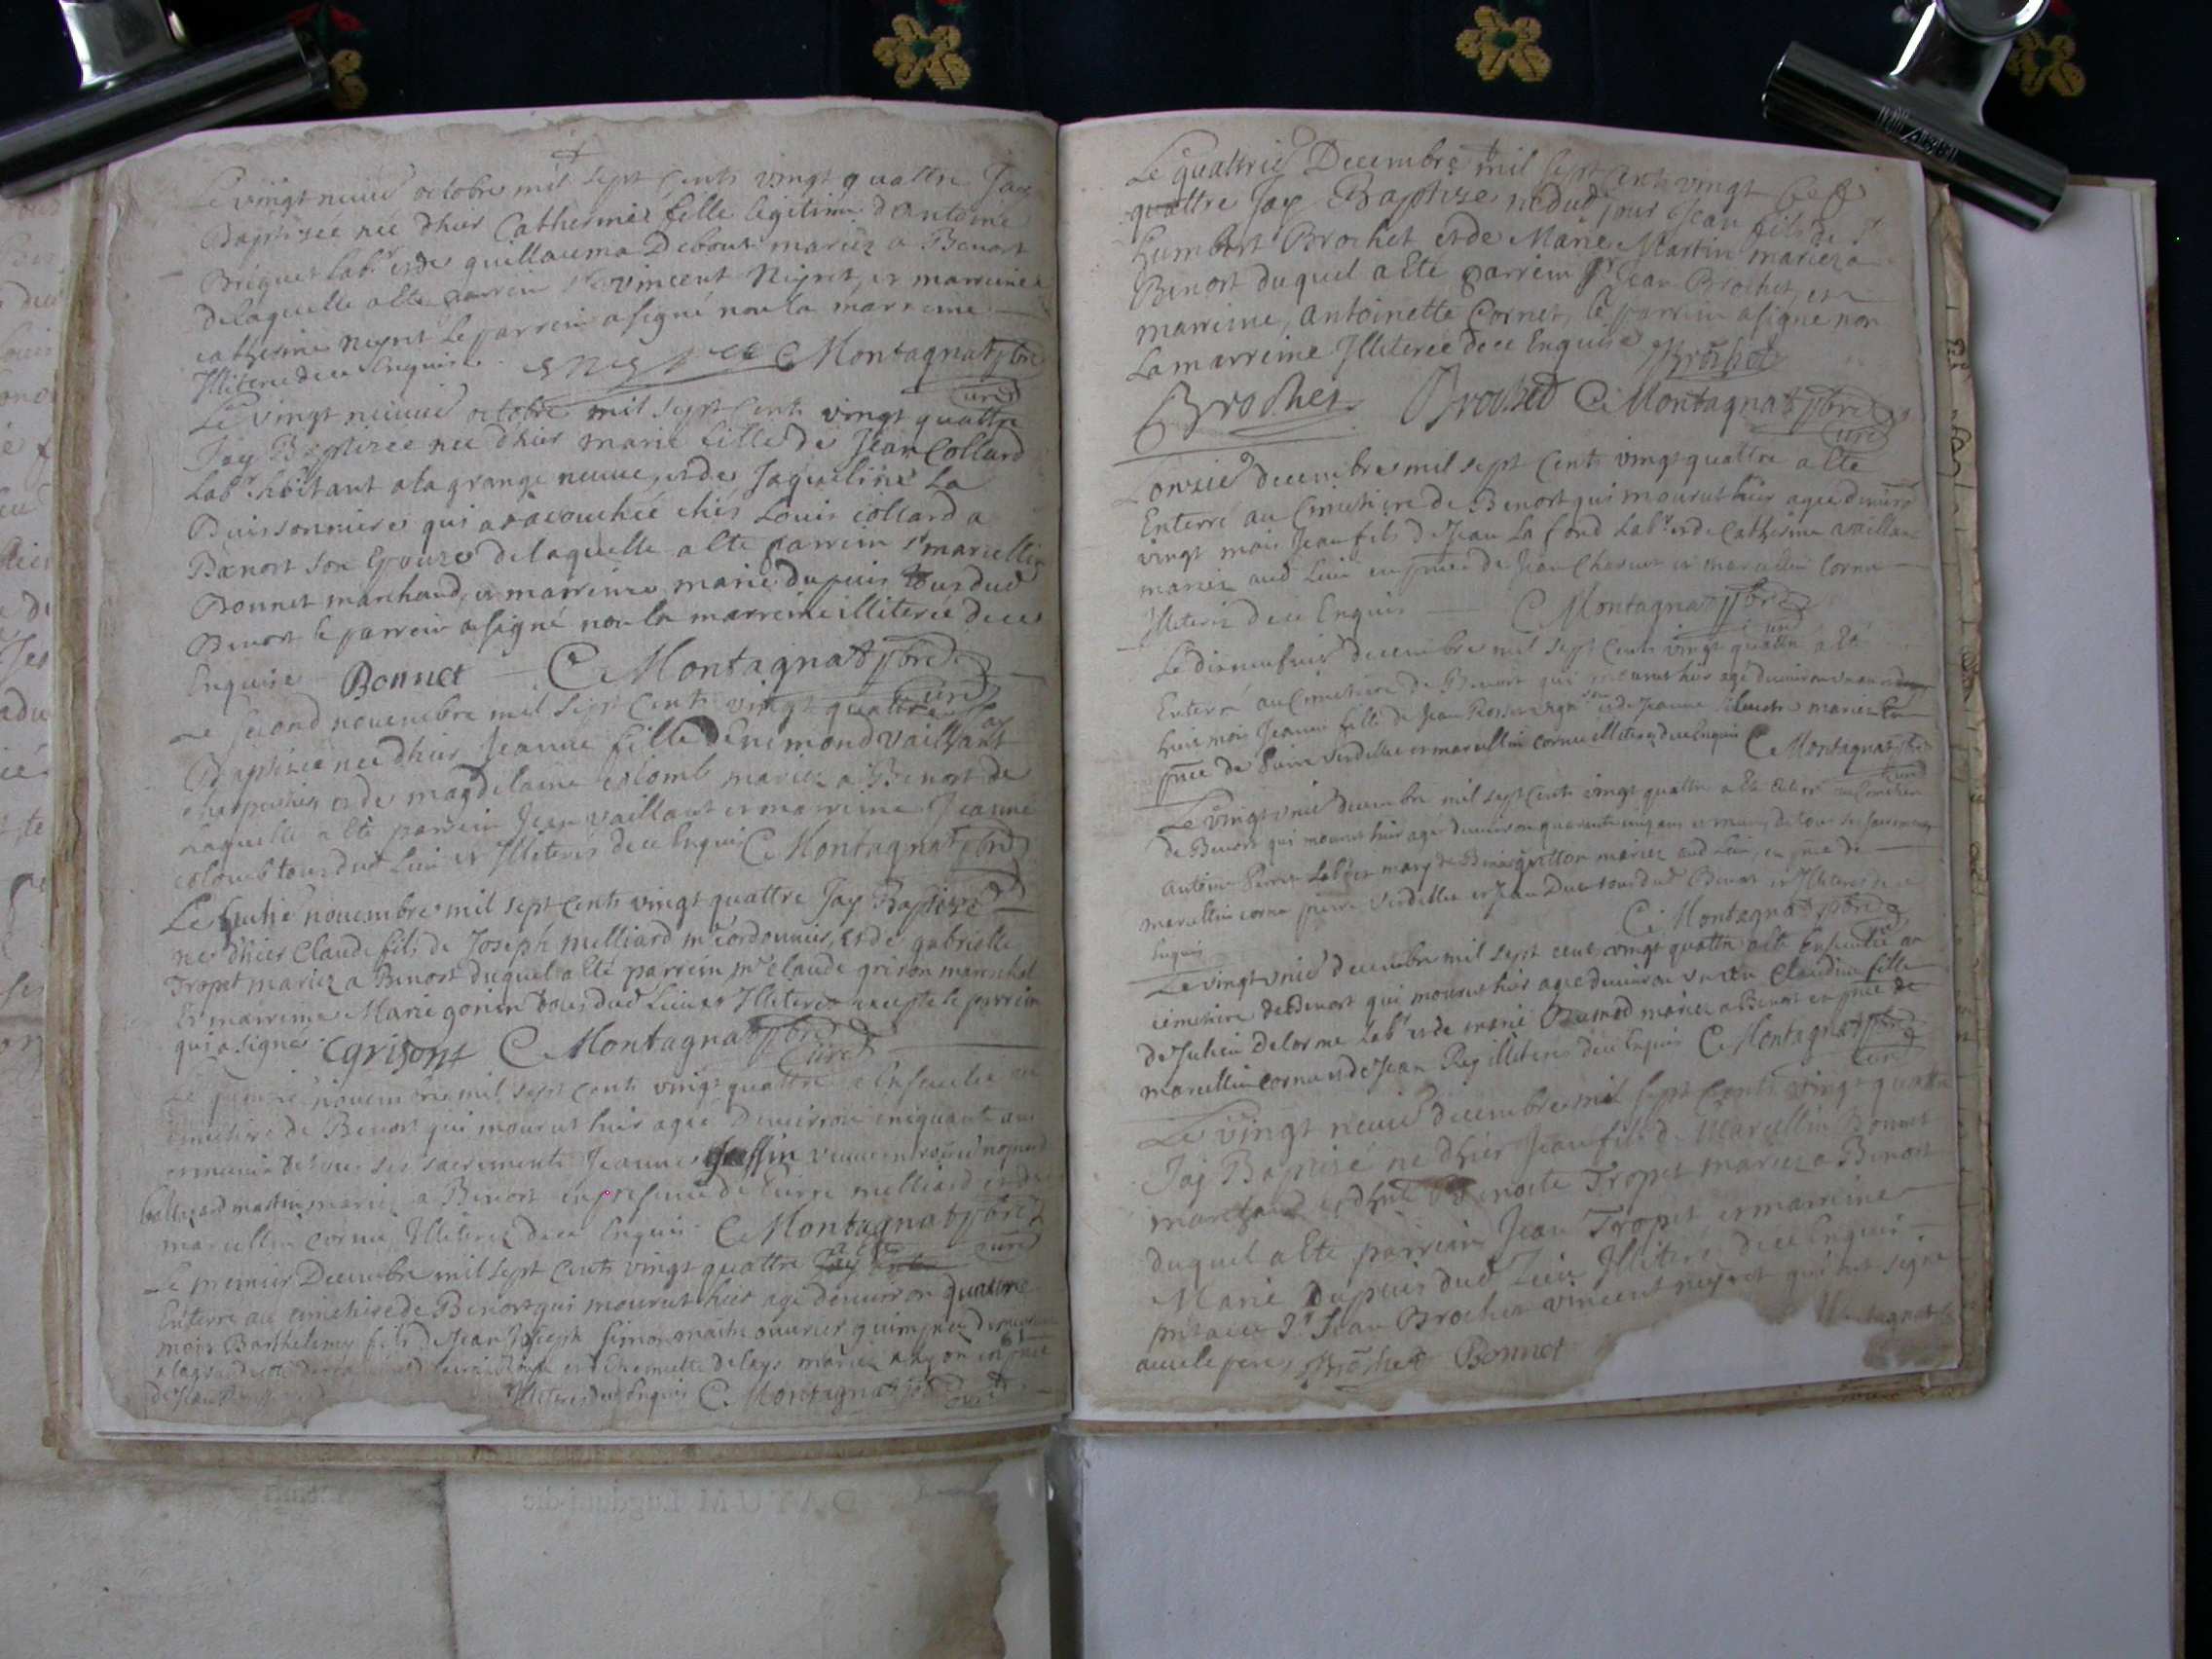 Le vingt neuvie octobre mil sept cents vingt quattre Jay
Baptisée née dhier Catherine fille legitime d'antoine
Briquet lab.r et de guillauma Debout mariez a Benost
delaquelle a Eté parrein Sr vincent Neyret, et marreine
catherine neyret le parrein a signé non la marreine
Illiteree de ce Enquise C Montagnat pbre
curé
Le vingt neuvie octobre mil sept cents vingt quattre
Jay Baptizée née dhier marie fille de Jean Collard
lab.r habitant a la grange neuve, et de Jaqueline La
Buissonniere qui a accouchée chés Louis collard a
Benost son Epouze delaquelle a Eté parrein Sr marcellin
Bonnet marchand, et marreine marie dupuis tous dud
Benost le parrein a signé non la marreine illiteree de ce
Enquise Bonnet C Montagnat pbre
curé
Le second novembre mil sept cents vingt quattre Jay
Baptizée née dhier Jeanne fille d'Enemond vaillant
charpentier et de magdelaine colomb mariez a Benost de
laquelle a Eté parrein Jean vaillant et marreine Jeanne
colomb tous dud Lieu et Illiterés de ce Enquis C Montagnat pbre
Le huitie novembre mil sept cents vingt quattre Jay Baptizé
né dhier Claude fils de Joseph milliard me cordonnier, et de gabrielle
Tropet mariez a Benost duquel a Eté parrein mr claude grison mareschal
Et marreine Marie gonin tous dud Lieu et Illiterez excepté le parrein
qui a signé Cgrisont C Montagnat pbre
curé
Le quinzie novembre mil sept cents vingt quattre a Ensevelie au
cimetiere de Benost qui mourut hier agée denviron cinquante ans
et munie de tous ses sacrements Jeanne Joffin veuve
martin mariez a Benost en presence de Pierre milliard et de
marcellin cornu Illiterez de ce Enquis C Montagnat pbre
curé
Le premier Decembre mil sept cents vingt quattre a été
Enterré au cimetiere de Benost qui mourut hier agé denviron quatorze
mois Barthelemy fils de Jean Joseph Simon maitre ouvrier
mariez a Lyon en pnce
de Jean Illiterez de ce Enquis C Montagnat pbre
curé
Le quattrie Decembre mil sept cents vingt
quattre Jay Baptize né dud jour Jean fils de Sr
humbert Brochet et de Marie Martin mariez a
Benost duquel a Eté parrein Sr Jean Brochet, et
marreine, antoinette Cornet, le parrein a signé non
La marreine Illiterée de ce Enquise Brochet
Brochet Brochet C Montagnat pbre
curé
L'onzie decembre mil sept cents vingt quattre a Eté
Enterré au Cimetiere de Benost qui mourut hier agée denviron
vingt mois Jean fils de Jean La fond Lab.r et de Catherine vaillant
mariez aud Lieu en pnce de Jean Charvet et marcellin Cornu
Illiterez de ce Enquis C Montagnat pbre
curé
Le dixneufvie decembre mil sept cents vingt quattre a Eté
Enterré au Cimetiere de Benost qui mourut hier agé denviron un an
huit mois Jeanne fille de Jean Rosser et de Jeanne Silvestre mariez En
pnce de Pierre verdellet et marcellin cornu illiterez de ce Enquis C Montagnat pbre
curé
Le vingt unie decembre mil sept cents vingt quattre a Eté Enterré au Cimetiere
de Benost qui mourut hier agé denviron quarante cinq ans et muny de tous ses sacrements
antoine Perret Lab.r et mary de Benoite guitton mariez aud Lieu, en pnce de
marcellin cornu pierre verdellet et Jean Duc tous dud Benost et Illiterez de ce
Enquis C Montagnat pbre
Le vingt unie decembre mil sept cents vingt quattre a Eté Ensevelie au
cimetiere de Benost qui mourut hier agée denviron un an Claudine fille
de Julien Delorme Lab.r et de marie Ramod mariez a Benost en pnce de
marcellin cornu et de Jean Rey illiterés de ce Enquis C Montagnat pbre
curé
Le vingt neuvie decembre mil sept cents vingt quattre
Jay Baptizé né dhier Jean fils de Marcellin Bonnet
marchand et dhte Benoite Tropet mariez a Benost
duquel a Eté parrein Jean Tropet et marreine
Marie Dupuis dud Lieu Illiteré de ce Enquis
presence Sr Jean Brochet vincent neyret qui ont signé
avec le pere Brochet Bonnet Montagnat